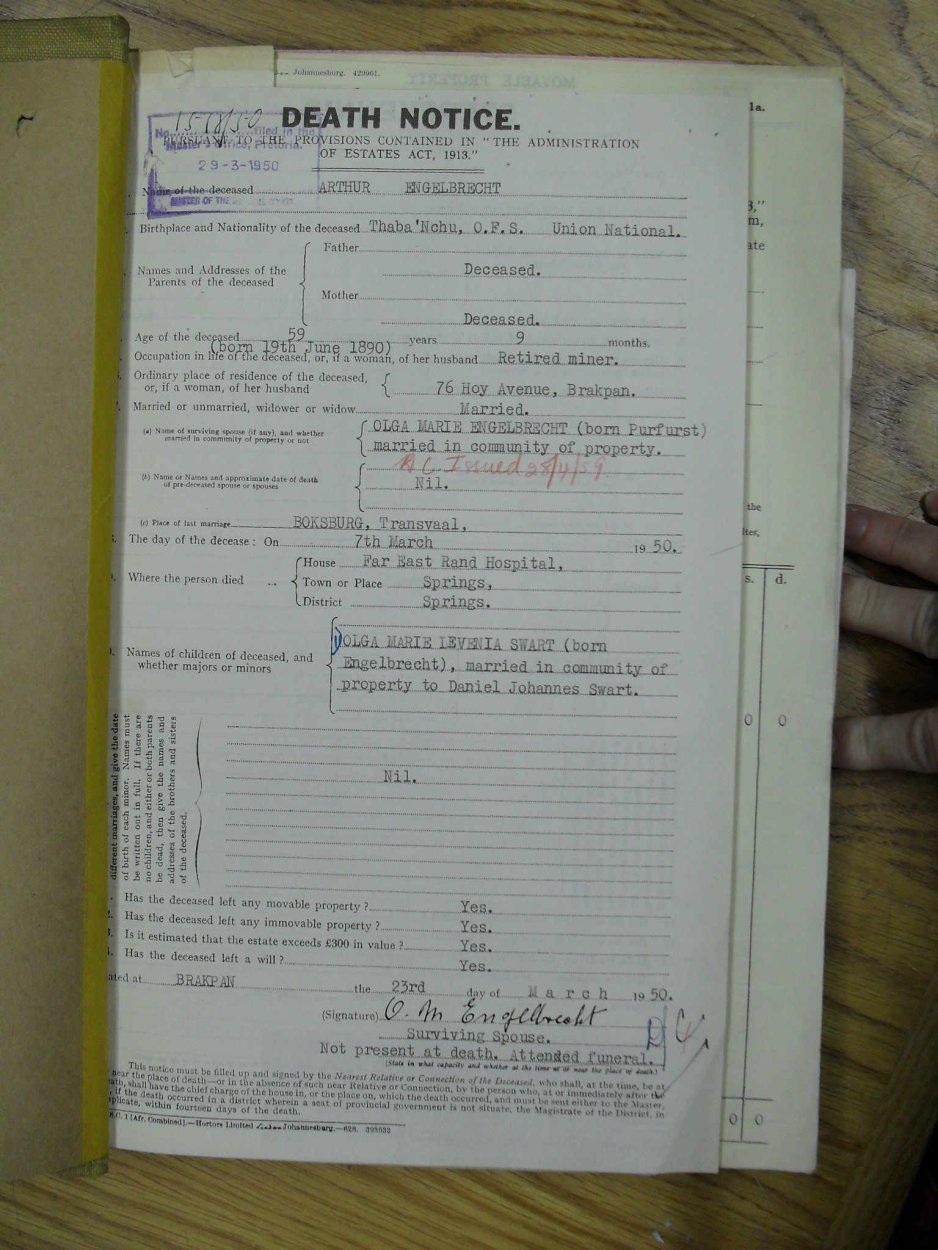 Johannesburg. 429901.
MOVABLE PROPERTY
DEATH NOTICE.
No. filed in the
Master's Office, Pretoria.
29-3-1950
MASTER OF THE
PURSUANT TO THE PROVISIONS CONTAINED IN "THE ADMINISTRATION
OF ESTATES ACT, 1913."
Name of the deceased ARTHUR ENGELBRECHT
Birthplace and Nationality of the deceased Thaba'Nchu, O.F.S. Union National.
Names and Addresses of the
Parents of the deceased
Father
Deceased.
Mother
Deceased.
Age of the deceased 59 years 9 months.
(born 19th June 1890)
Occupation in life of the deceased, or, if a woman, of her husband Retired miner.
Ordinary place of residence of the deceased,
or, if a woman, of her husband 76 Hoy Avenue, Brakpan.
Married or unmarried, widower or widow Married.
(a) Name of surviving spouse (if any), and whether
married in community of property or not
OLGA MARIE ENGELBRECHT (born Purfurst)
married in community of property.
Issued 28/4/59
(b) Name or Names and approximate date of death
of pre-deceased spouse or spouses
Nil.
(c) Place of last marriage BOKSBURG, Transvaal,
The day of the decease: On 7th March 1950.
Where the person died ..
House Far East Rand Hospital,
Town or Place Springs,
District Springs.
Names of children of deceased, and
whether majors or minors
OLGA MARIE LEVENIA SWART (born
Engelbrecht), married in community of
property to Daniel Johannes Swart.
different marriages, and give the date
of birth of each minor. Names must
be written out in full. If there are
no children, and either or both parents
be dead, then give the names and
addresses of the brothers and sisters
of the deceased.
Nil.
Has the deceased left any movable property? Yes.
Has the deceased left any immovable property? Yes.
Is it estimated that the estate exceeds £300 in value? Yes.
Has the deceased left a will? Yes.
ated at BRAKPAN the 23rd day of March 1950.
(Signature) O. M Engelbrecht
Surviving Spouse.
Not present at death. Attended funeral.
(State in what capacity and whether at the time at or near the place of death.)
This notice must be filled up and signed by the Nearest Relative or Connection of the Deceased, who shall, at the time, be at
near the place of death—or in the absence of such near Relative or Connection, by the person who, at or immediately after the
ath, shall have the chief charge of the house in, or the place on, which the death occurred, and must be sent either to the Master,
if the death occurred in a district wherein a seat of provincial government is not situate, the Magistrate of the District, in
plicate, within fourteen days of the death.
[Afr. Combined].—Hortors Limited Johannesburg.—628, 393633
la.
3,"
m,
ate
the
ites,
s. d.
0 0
0 0